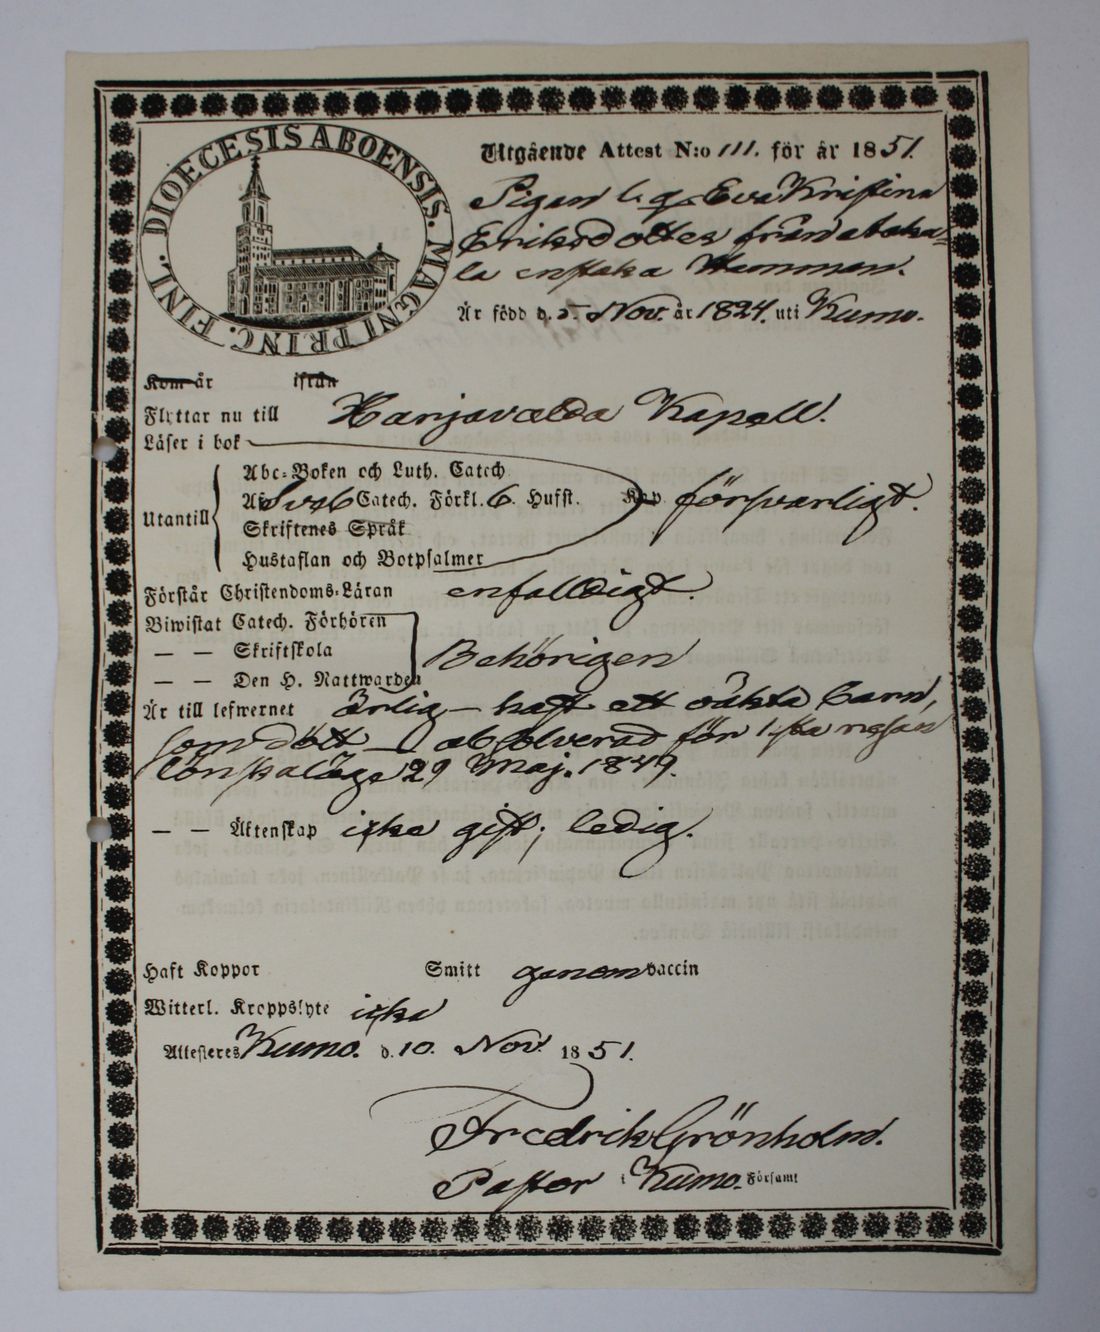 DIOECESIS ABOENSIS. MAGNI PRINC. FINL.
Utgående Attest N:o 111. för år 1851.
Pigan Eva Kristina
Eriksdotter från
Hammen.
Är född d. 5. Nov. år 1824. uti Kumo.
Kom år ifrån
Flyttar nu till Harjavalda Kapell.
Läser i bok
Abc-Boken och Luth. Catech
Af Sveb Catech. Förkl. 6. Husst. Kap. försvarligt.
Utantill
Skriftenes Språk
Hustaflan och Botpsalmer
Förstår Christendoms-Läran enfaldigt.
Biwistat Catech. Förhören
— — Skriftskola Behörigen
— — Den H. Nattwarden
Är till lefwernet ärlig — haft ett oäkta barn,
som dött — absolverad för 1sta resan
lönskaläge 29 Maj. 1849
— — Äktenskap icke gift; ledig.
Haft Koppor Smitt genom vaccin
Witterl. Kroppslyte icke
Attesteres Kumo. d. 10. Nov. 1851.
Fredrik Grönholm.
Pastor i Kumo. Församl